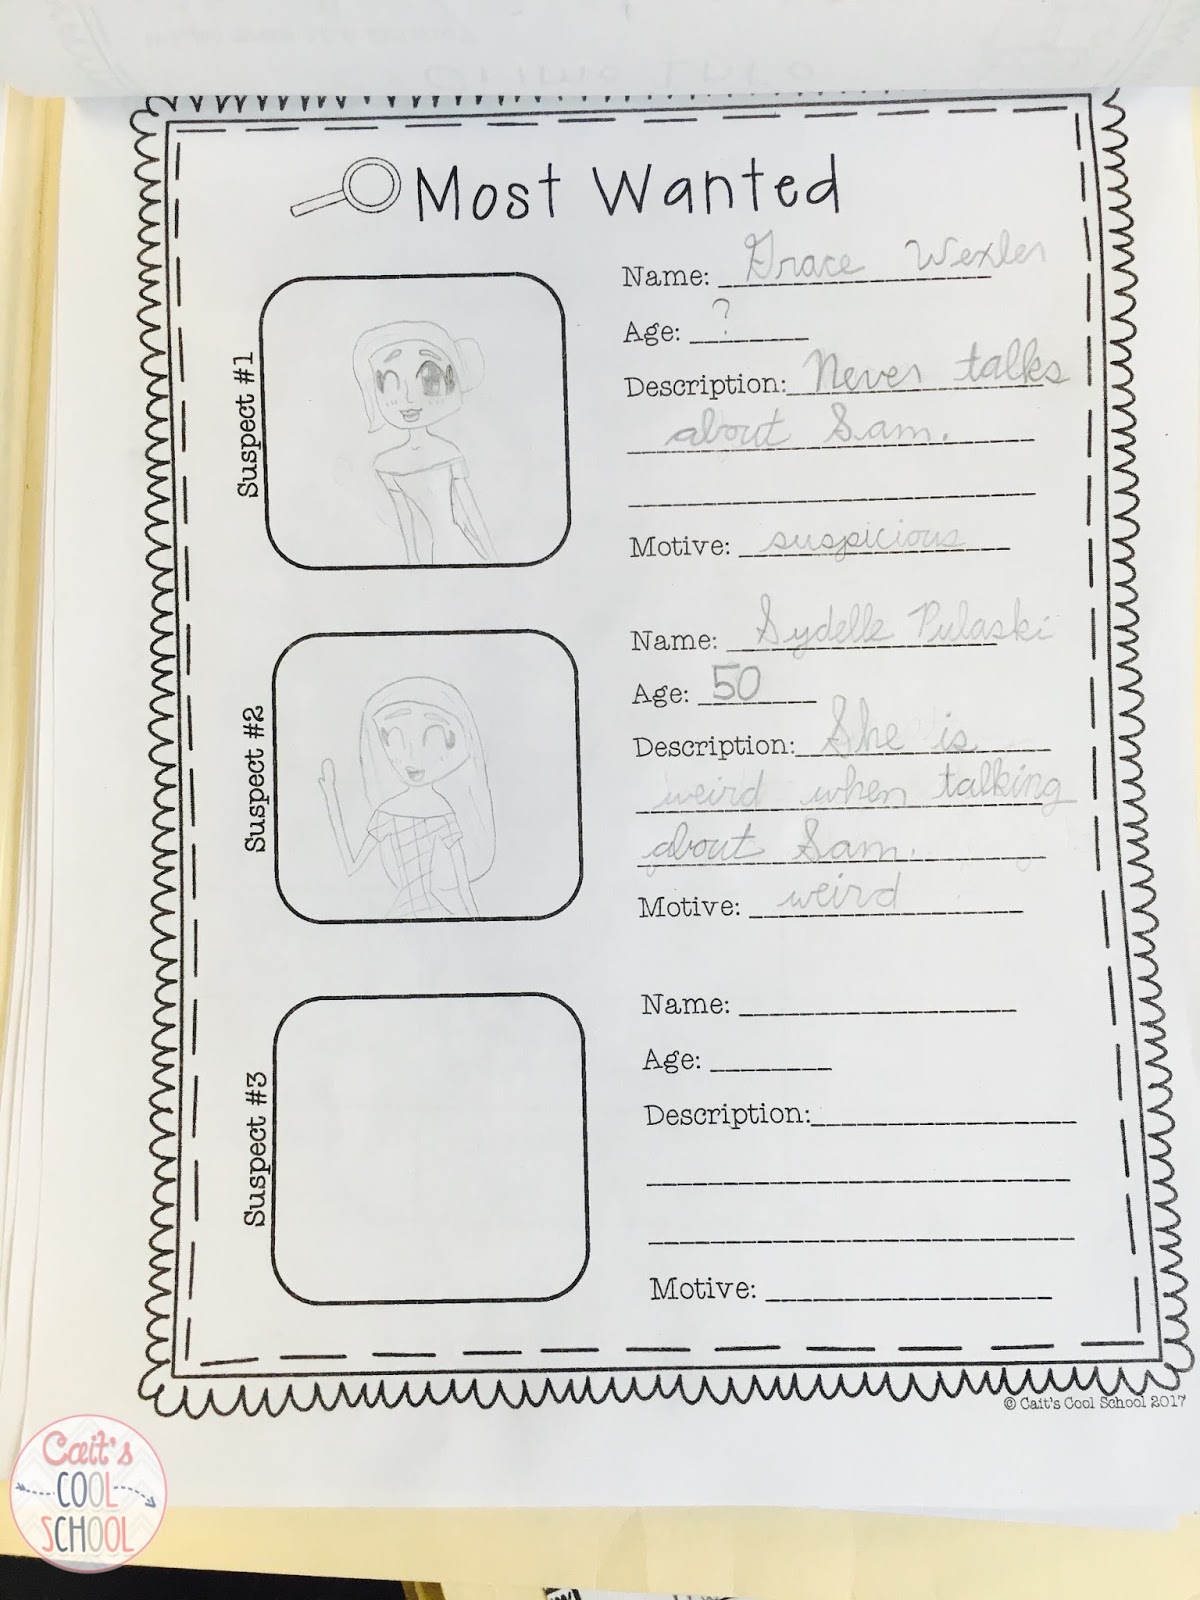 Most Wanted
Suspect #1
Name: Grace Wexler
Age: ?
Description: Never talks
about Sam.
Motive: suspicious
Suspect #2
Name: Sydelle Pulaski
Age: 50
Description: She is
weird when talking
about Sam.
Motive: weird
Suspect #3
Name:
Age:
Description:
Motive:
© Cait's Cool School 2017
Cait's
COOL
SCHOOL